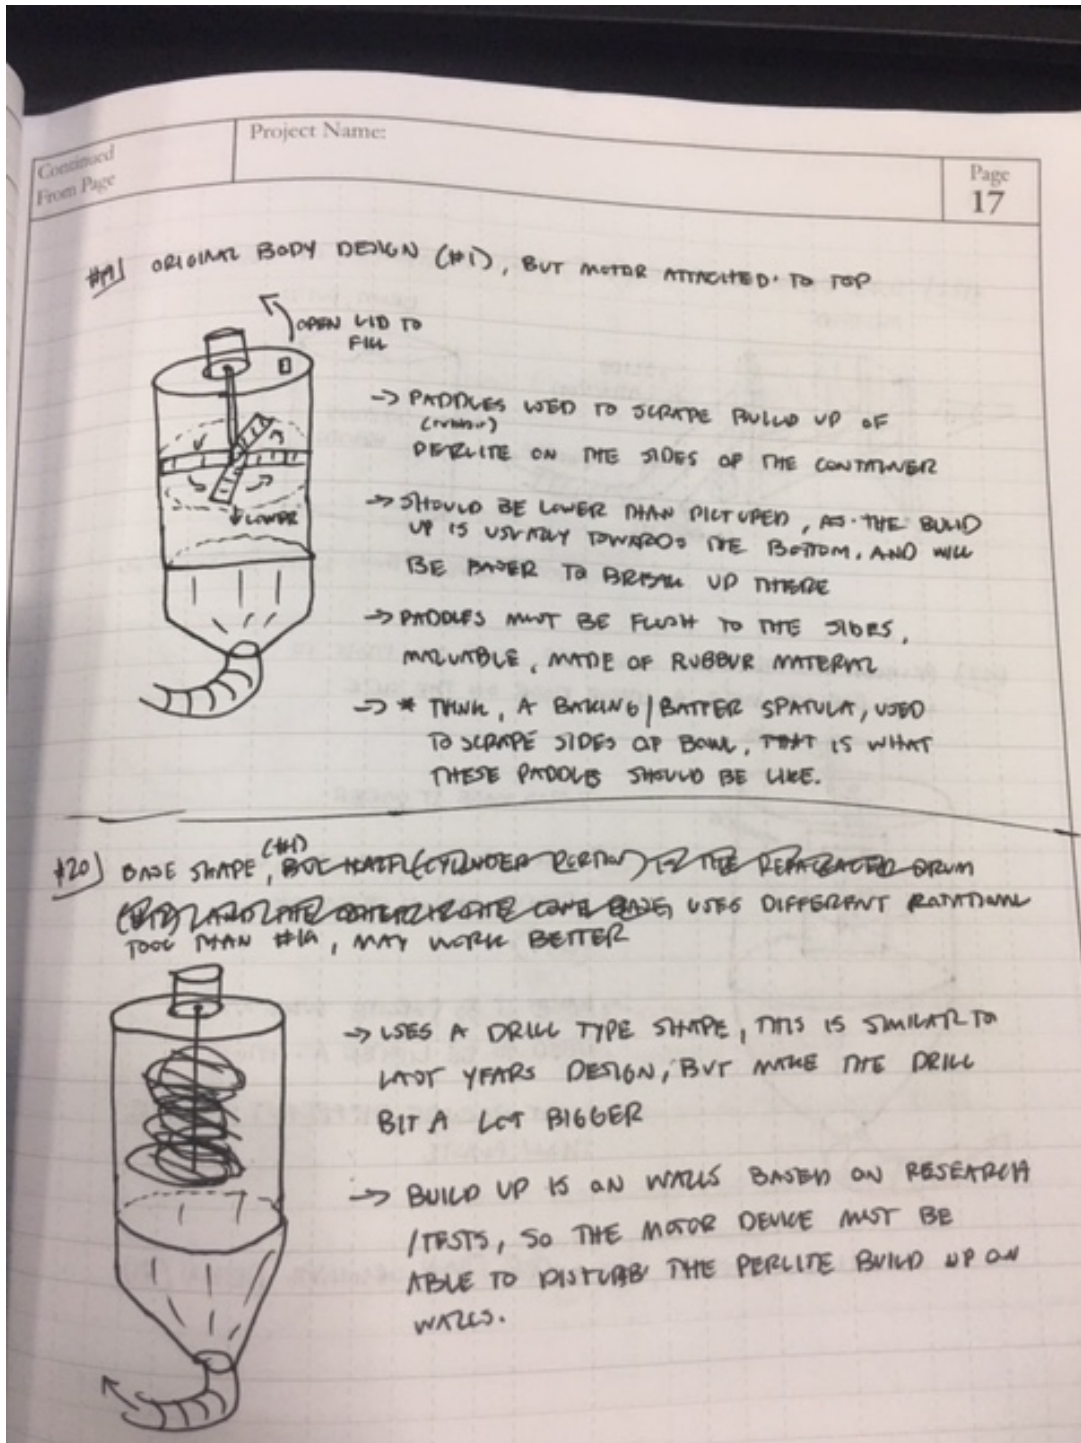 Continued
From Page
Project Name:
Page
17
#19) ORIGINAL BODY DESIGN (#1), BUT MOTOR ATTACHED TO TOP
OPEN LID TO
FILL
-> PADDLES USED TO SCRAPE BUILD UP OF
(rubber)
PERLITE ON THE SIDES OF THE CONTAINER
-> SHOULD BE LOWER THAN PICTURED, AS THE BUILD
UP IS USUALLY TOWARDS THE BOTTOM. AND WILL
BE EASIER TO BREAK UP THERE
↓ LOWER
-> PADDLES MUST BE FLUSH TO THE SIDES,
MALUABLE, MADE OF RUBBUR MATERIAL
-> * THINK, A BAKING/BATTER SPATULA, USED
TO SCRAPE SIDES OF BOWL, THAT IS WHAT
THESE PADDLES SHOULD BE LIKE.
(#1)
#20) BASE SHAPE, DRUM
USES DIFFERENT ROTATIONAL
TOOL THAN #19, MAY WORK BETTER
-> USES A DRILL TYPE SHAPE, THIS IS SIMILAR TO
LAST YEARS DESIGN, BUT MAKE THE DRILL
BIT A LOT BIGGER
-> BUILD UP IS ON WALLS BASED ON RESEARCH
/TESTS, SO THE MOTOR DEVICE MUST BE
ABLE TO DISTURB THE PERLITE BUILD UP ON
WALLS.